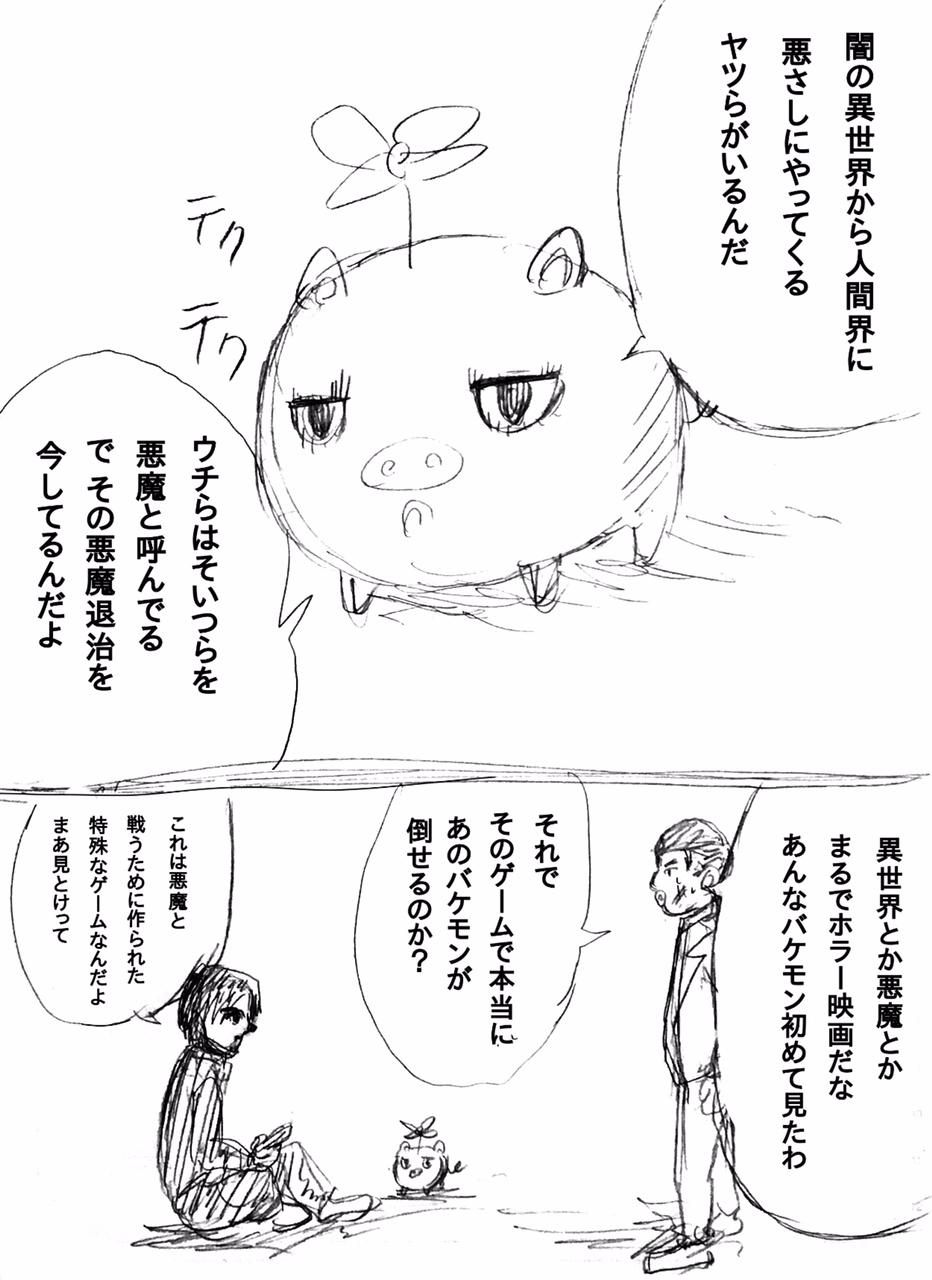 闇の異世界から人間界に
悪さしにやってくる
ヤツらがいるんだ
テク
テク
ウチらはそいつらを
悪魔と呼んでる
で その悪魔退治を
今してるんだよ
異世界とか悪魔とか
まるでホラー映画だな
あんなバケモン初めて見たわ
それで
そのゲームで本当に
あのバケモンが
倒せるのか?
これは悪魔と
戦うために作られた
特殊なゲームなんだよ
まあ見とけって